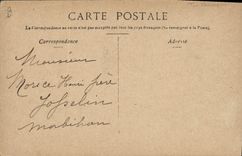 CARTE POSTALE
La Correspondance au recto n'est pas acceptée par tous les pays étrangers (Se renseigner à la Poste).
Correspondance
Adresse
Monsieur
Morice Henri frère
Josselin
Morbihan